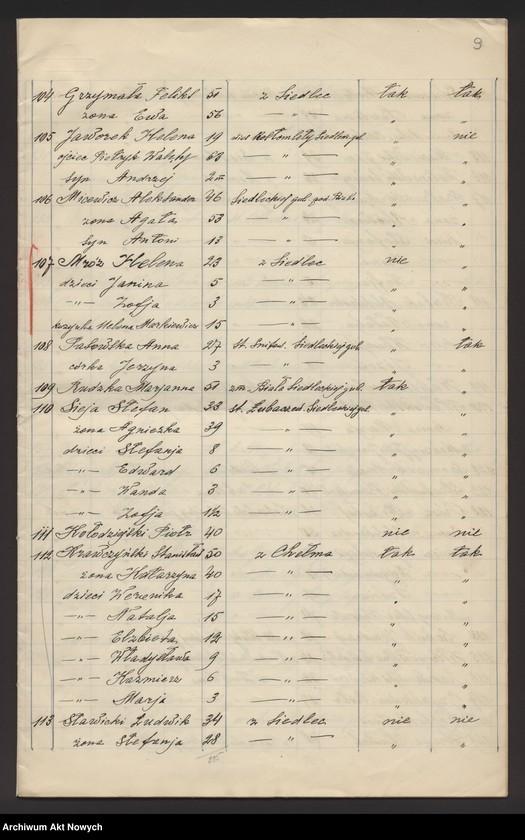 9
104 Grzymała Feliks 51 z Siedlec tak tak
żona Ewa 56 — " — " "
135 Jaworek Helena 19 Siedlec " nie
ojciec Pietrzyk " "
syn Andrzej — " — " "
106 Micewicz Aleksander 46 Siedleckiej gub. " "
żona Agata 53 — " — " "
syn Antoni 13 — " — " "
107 Mróz Helena 23 z Siedlec nie "
dzieci Janina 5 — " — " "
— " — Zofja 3 — " — " "
kuzynka Helena Markiewicz 15 — " — " "
108 Anna 27 st. Siedleckiej gub. " tak
córka Jerzyna 3 — " — " "
109 Rudzka Marjanna 51 Biała Siedleckiej gub. tak "
110 Sieja Stefan 33 st. Siedleckiej gub. " "
żona Agnieszka 39 — " — " "
dzieci Stefanja 8 — " — " "
— " — Edward 6 — " — " "
— " — Wanda 3 — " — " "
— " — Zofja — " — " "
111 Kołodziejski Piotr 40 nie nie
112 Krawczyński Stanisław 50 z Chełma tak tak
żona Katarzyna 40 — " — " "
dzieci Weronika 17 — " — " "
— " — Natalja 15 — " — " "
— " — Elżbieta 12 — " — " "
— " — Władysława 9 — " — " "
— " — Kazimierz 6 — " — " "
— " — Marja 3 — " — " "
113 Sławicki Ludwik 34 z Siedlec nie nie
żona Stefanja 28 — " — " "
Archiwum Akt Nowych